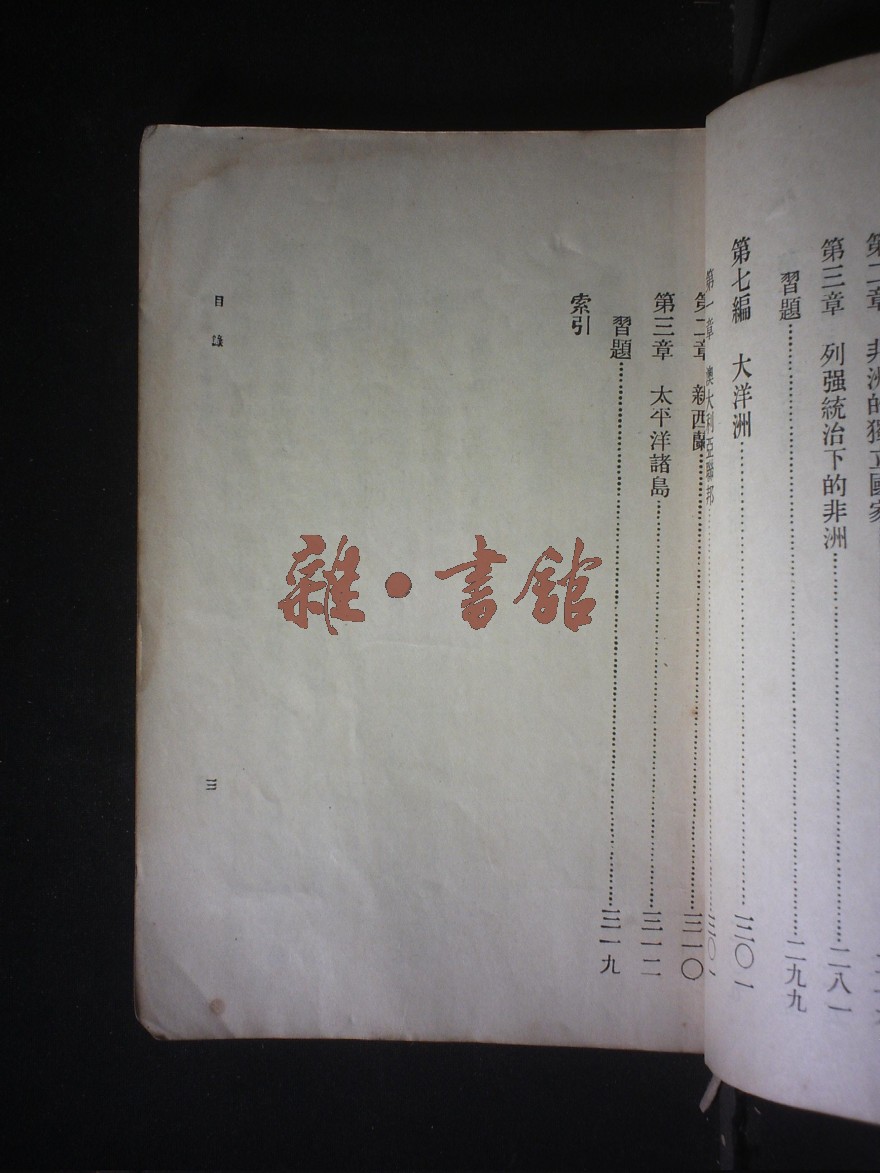 第二章 非洲的獨立國家
第三章 列强統治下的非洲……二八一
習題……二九九
第七編 大洋洲……三〇一
第一章 澳大利亞聯邦……三〇一
第二章 新西蘭……三一〇
第三章 太平洋諸島……三一二
習題……三一九
索引
目錄 三
雜•書館